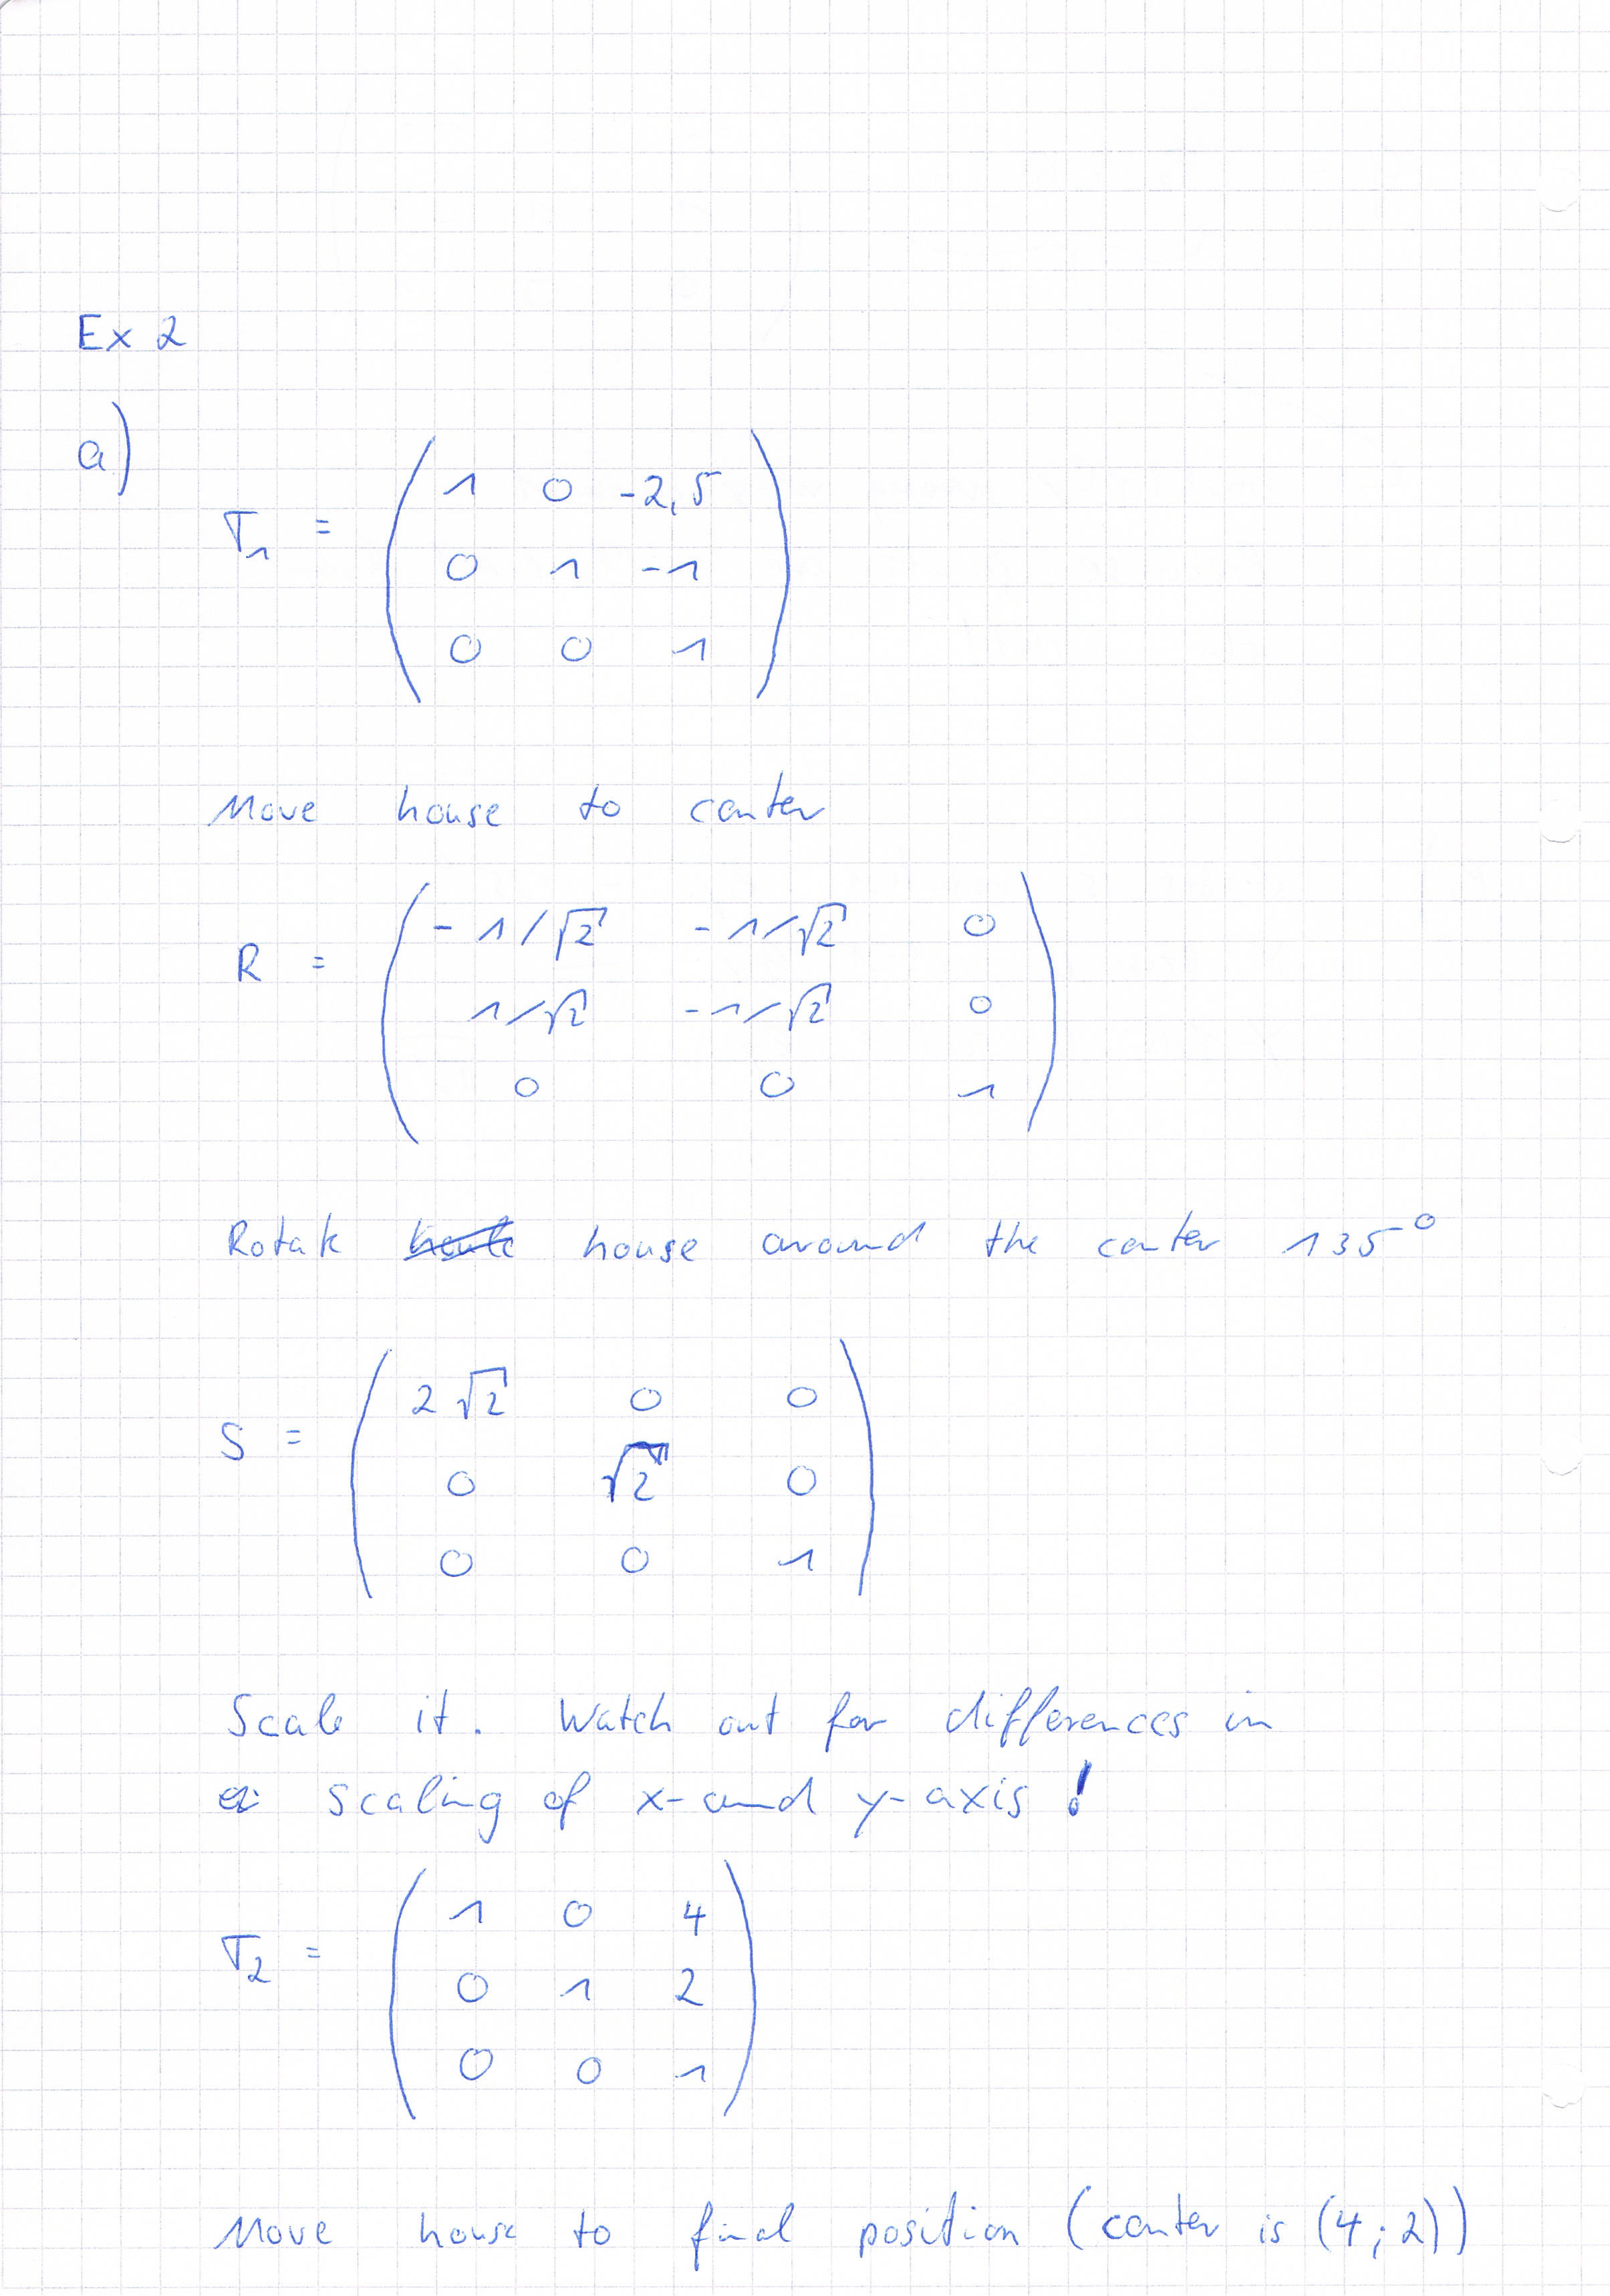 Ex 2
a)
T₁ = ( 1 0 -2,5
0 1 -1
0 0 1 )
Move house to center
R = ( -1/√2 -1/√2 0
1/√2 -1/√2 0
0 0 1 )
Rotate house around the center 135°
S = ( 2√2 0 0
0 √2 0
0 0 1 )
Scale it. Watch out for differences in
scaling of x- and y-axis!
T₂ = ( 1 0 4
0 1 2
0 0 1 )
Move house to final position (center is (4;2))